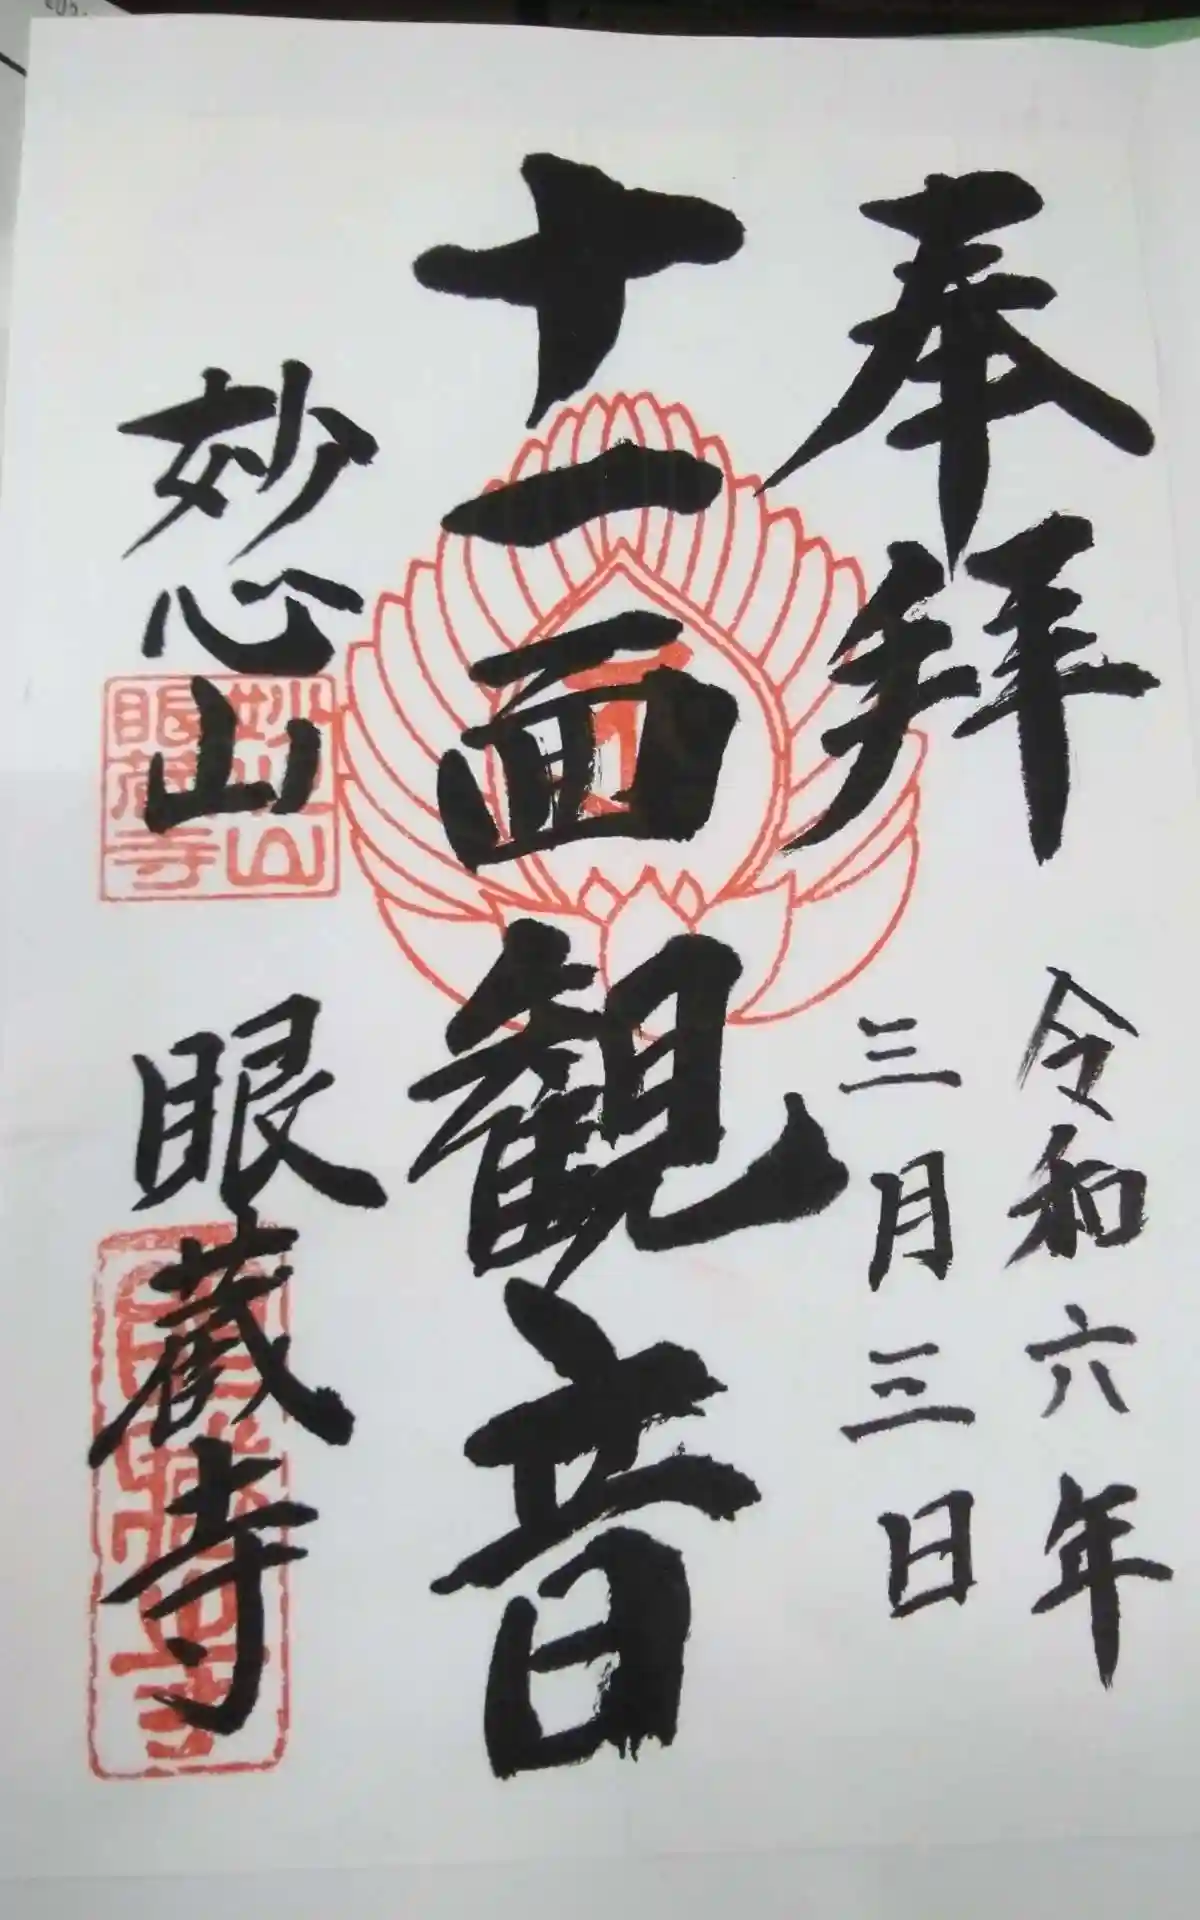 奉拝
令和六年
三月三日
十一面観音
妙心山
眼蔵寺
妙心山
眼蔵寺